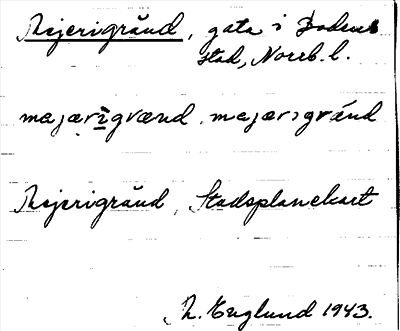 Mejerigränd, gata i Bodens
stad, Norrb. l.
mejerigränd, Stadsplanekart
N. Englund 1943.